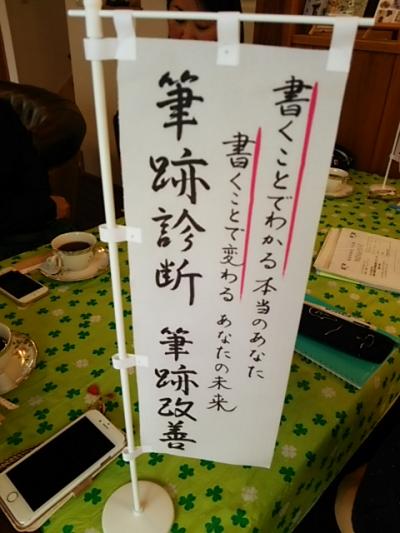 書くことでわかる 本当のあなた
書くことで変わる あなたの未来
筆跡診断 筆跡改善